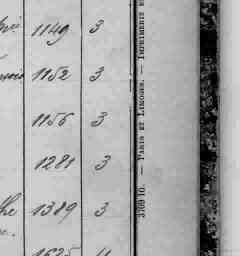 1149 3
1152 3
1156 3
1281 3
1389 3
37010. — PARIS ET LIMOGES. — IMPRIMERIE